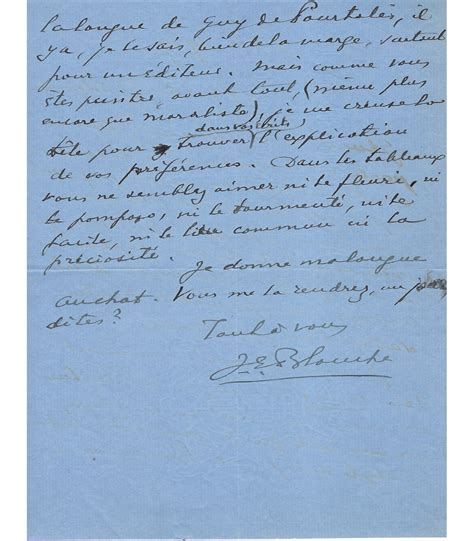 la langue de Guy de Pourtalès, il
y a, je le sais, bien de la marge, surtout
pour un éditeur. Mais comme vous
êtes peintre, avant tout, (même plus
encore que moraliste) je me creuse la
dans vos écrits
tête pour y trouver l'explication
de vos préférences. Dans les tableaux
vous ne semblez aimer ni le fleuri, ni
le pompeux, ni le tourmenté, ni le
facile, ni le lieu commun ni la
préciosité.
Je donne ma langue
au chat. Vous me la rendrez, un jour
dites?
Tout à vous
J. E. Blanche